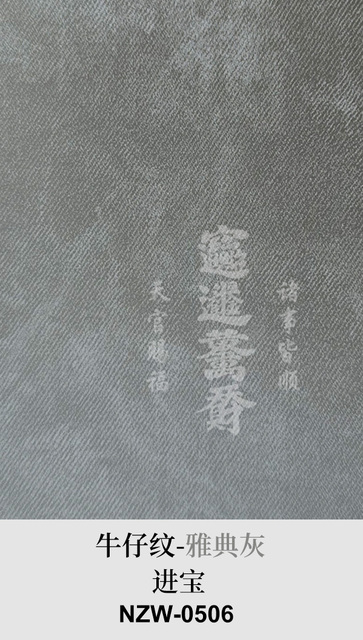 諸事皆順
天官賜福
牛仔纹-雅典灰
进宝
NZW-0506